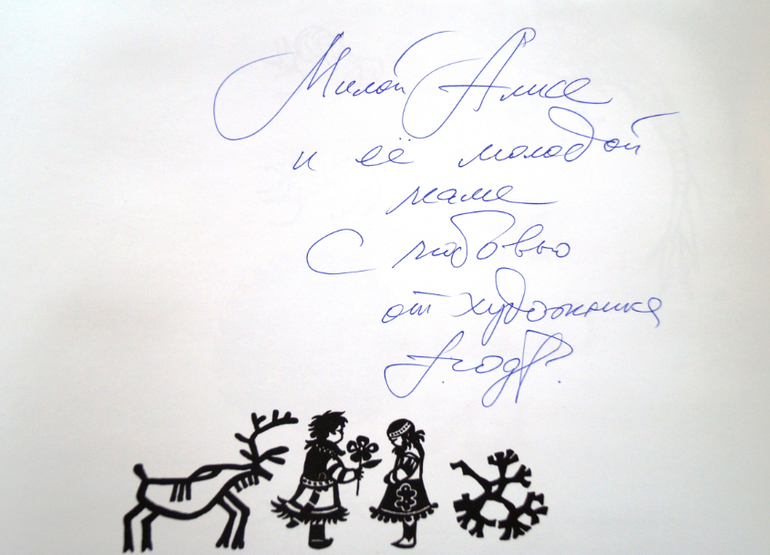 Милой Алисе
и её молодой
маме
С любовью
от художника